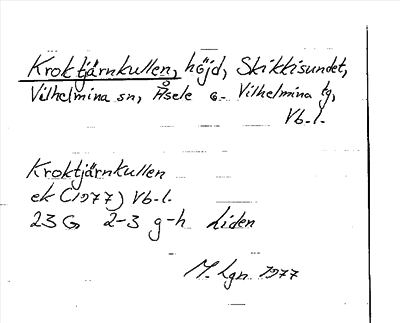 Kroktjärnkullen, höjd, Skikkisundet,
Vilhelmina sn, Åsele o. Vilhelmina tg,
Vb.l.
Kroktjärnkullen
ek (1977) Vb.l.
23 G 2-3 g-h Liden
M. Lgn 1977